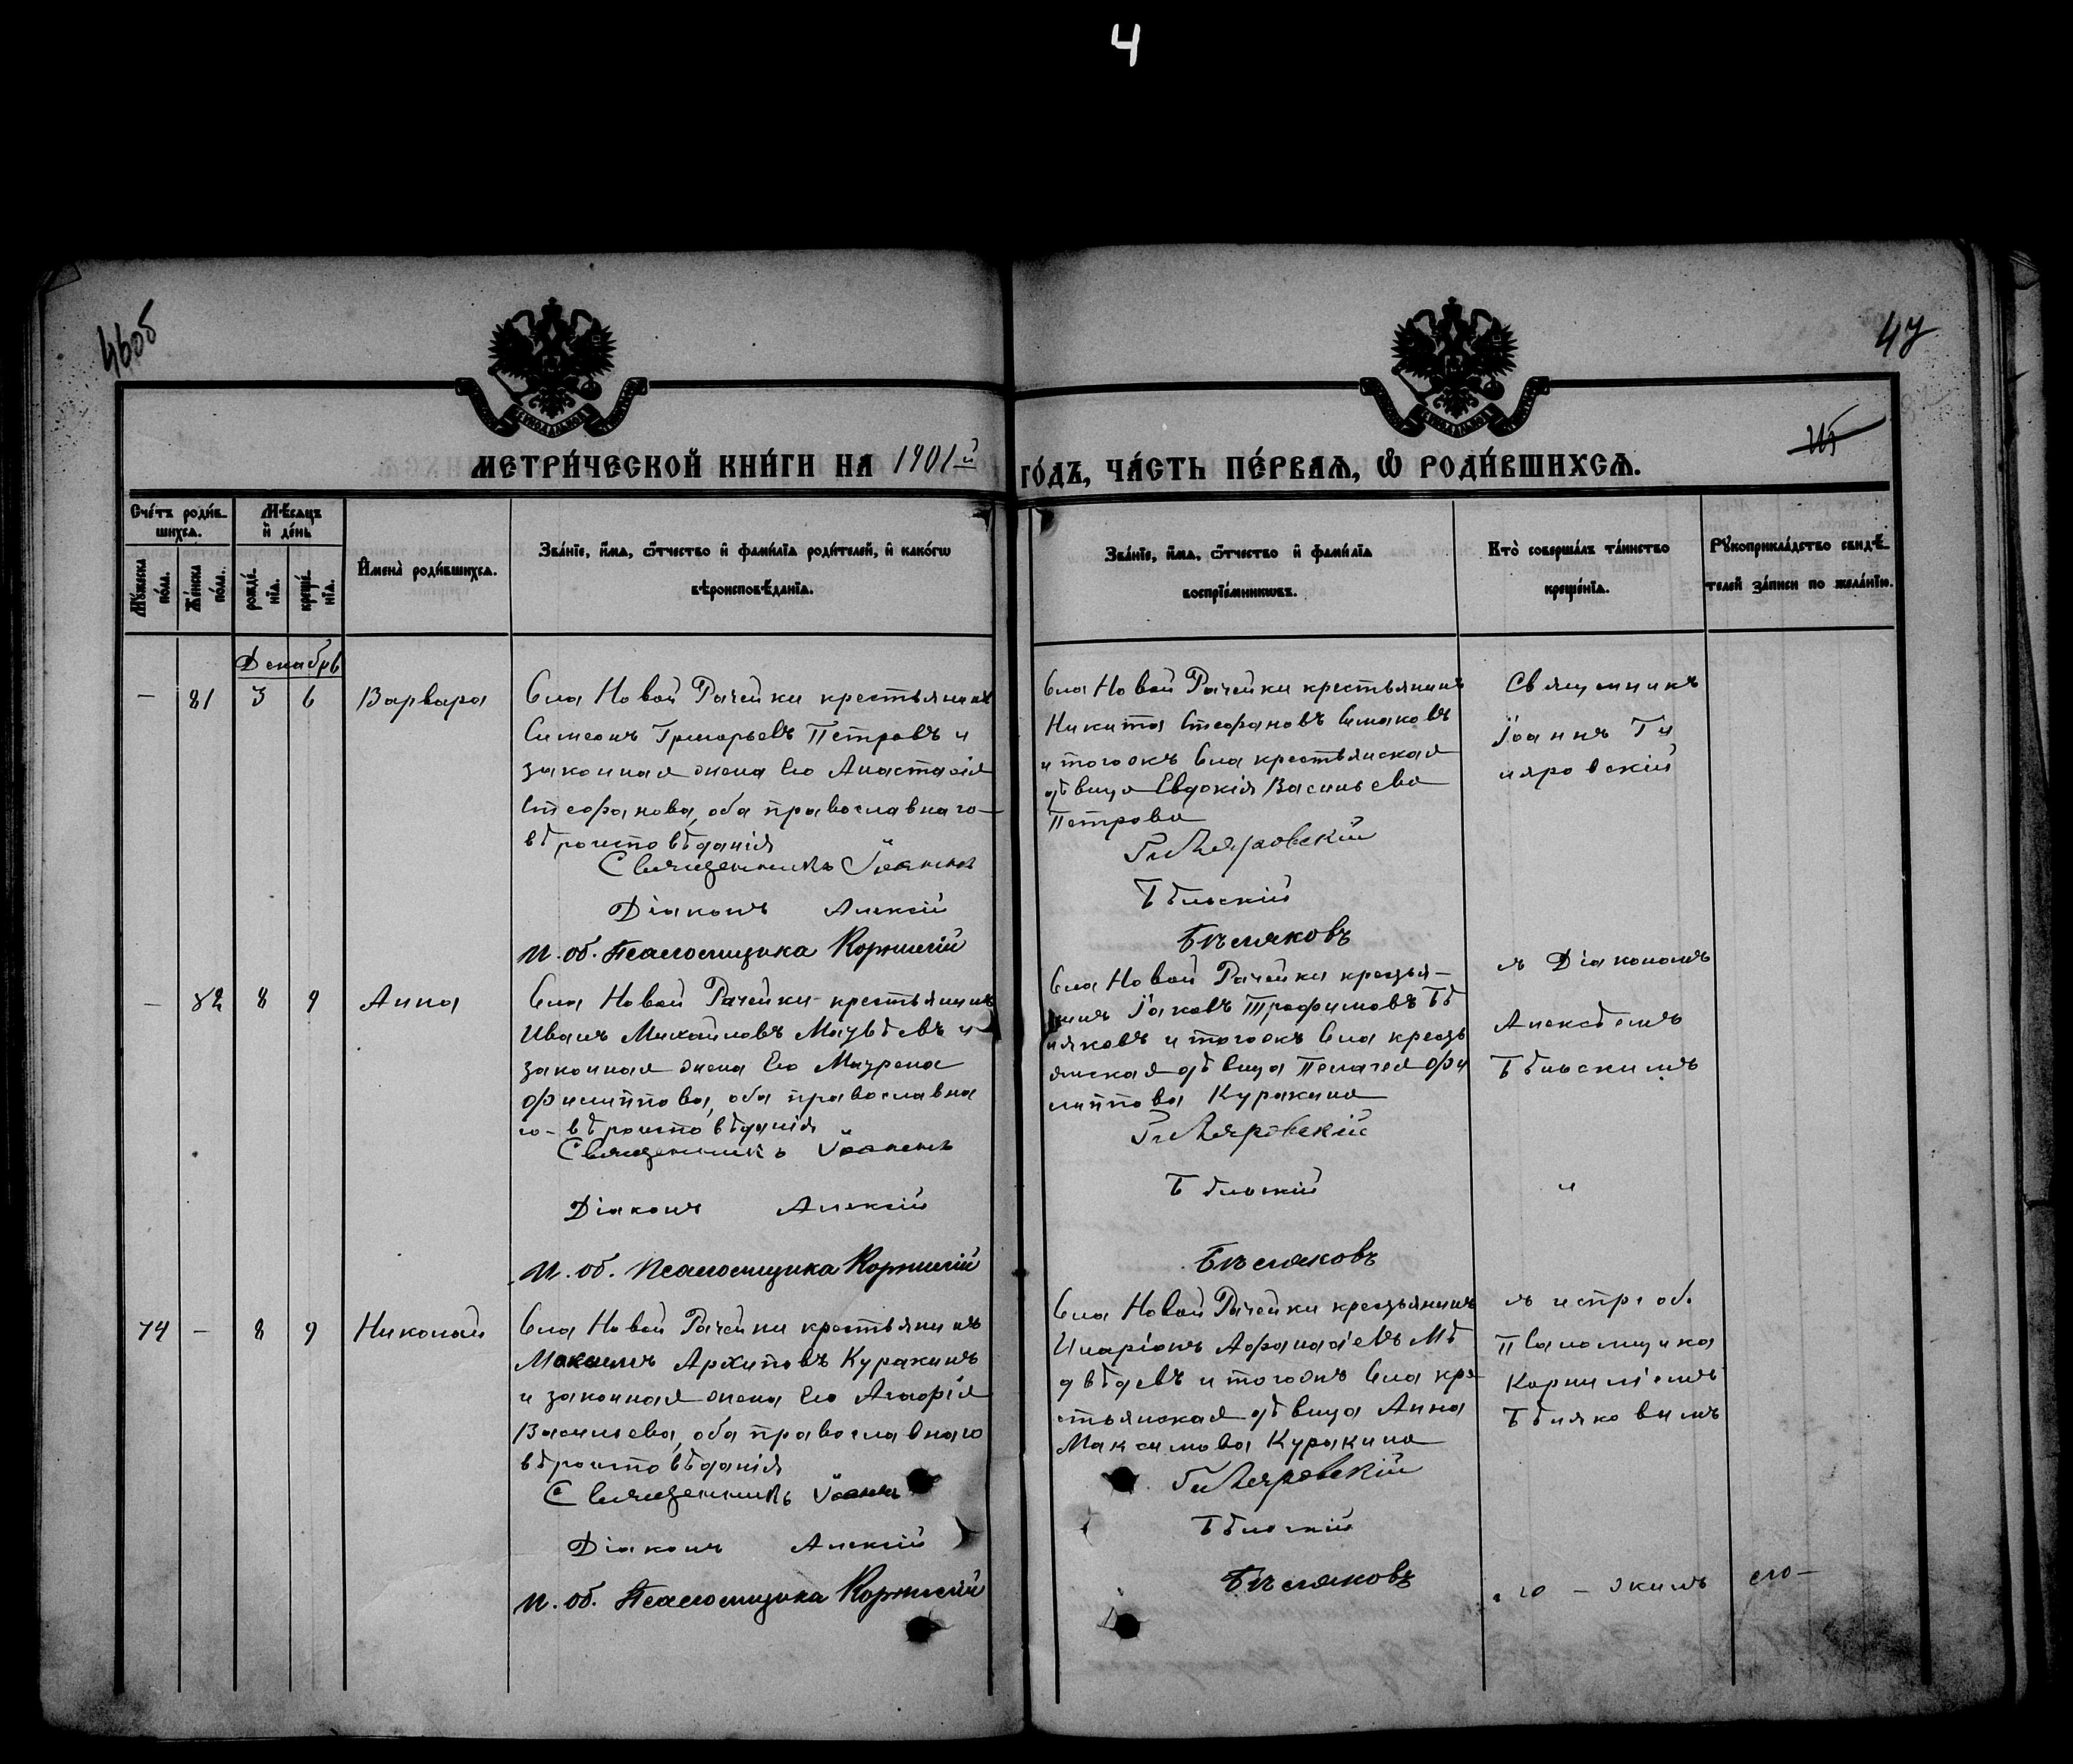 4
46об
47
МЕТРИ́ЧЕСКОЙ КНИ́ГИ НА 1901й
ГО́ДЪ, ЧА́СТЬ ПЕ́РВАѦ, Ѡ҆ РОДИ́ВШИХСѦ.
Сче́тъ роди́в-
шихсѧ.
Мѣ́сѧцъ
и҆ де́нь
Мꙋ́жеска по́ла.
Же́нска по́ла.
рожде́-нїѧ.
креще́-нїѧ.
И҆мена̀ роди́вшихсѧ.
Зва́нїе, и҆́мѧ, ѻ҆́тчество и҆ фами́лїѧ роди́телей, и҆ како́гѡ
вѣроисповѣ́данїѧ.
Зва́нїе, и҆́мѧ, ѻ҆́тчество и҆ фами́лїѧ
воспрїе́мникѡвъ.
Кто̀ соверша́лъ та́инство
креще́нїѧ.
Рꙋкоприкла́дство свидѣ́-
телей за́писи по жела́нїю.
Декабрь
— 81 3 6 Варвара
Села Новой Рачейки крестьянинъ
Симеонъ Григорьевъ Петровъ и
законная жена его Анастасія
Стефанова, оба православнаго
вѣроисповѣданія
Священникъ Іоаннъ
Діаконъ Алексій
И. об. Псаломщика Корнилій
Села Новой Рачейки крестьянинъ
Никита Стефановъ Симаковъ
и тогожъ села крестьянская
дѣвица Евдокія Васильева
Петрова
Гиляровскій
Бѣльскій
Бѣляковъ
Священникъ
Іоаннъ Ги
ляровскій
— 82 8 9 Анна
Села Новой Рачейки крестьянинъ
Иванъ Михайловъ Медвѣдевъ и
законная жена его Маурена
Филиппова, оба православна
го вѣроисповѣданія
Священникъ Іоаннъ
Діаконъ Алексій
И. об. Псаломщика Корнилій
Села Новой Рачейки крестья-
нинъ Іаковъ Трофимовъ Бѣ
ляковъ и тогожъ села кресть
янская дѣвица Пелагея Фи
липпова Куракина
Гиляровскій
Бѣльскій
Бѣляковъ
съ Діакономъ
Алексѣемъ
Бѣльскимъ
"
74 — 8 9 Николай
Села Новой Рачейки крестьянинъ
Максимъ Архиповъ Куракинъ
и законная жена его Агафія
Васильева, оба православнаго
вѣроисповѣданія
Священникъ Іоаннъ
Діаконъ Алексій
И. об. Псаломщика Корнилій
Села Новой Рачейки крестьянинъ
Иларіонъ Афанасіевъ Ме
двѣдевъ и тогожъ села кре
стьянская дѣвица Анна
Максимова Куракина
Гиляровскій
Бѣльскій
Бѣляковъ
съ испр. об.
Псаломщика
Корниліемъ
Бѣляковымъ